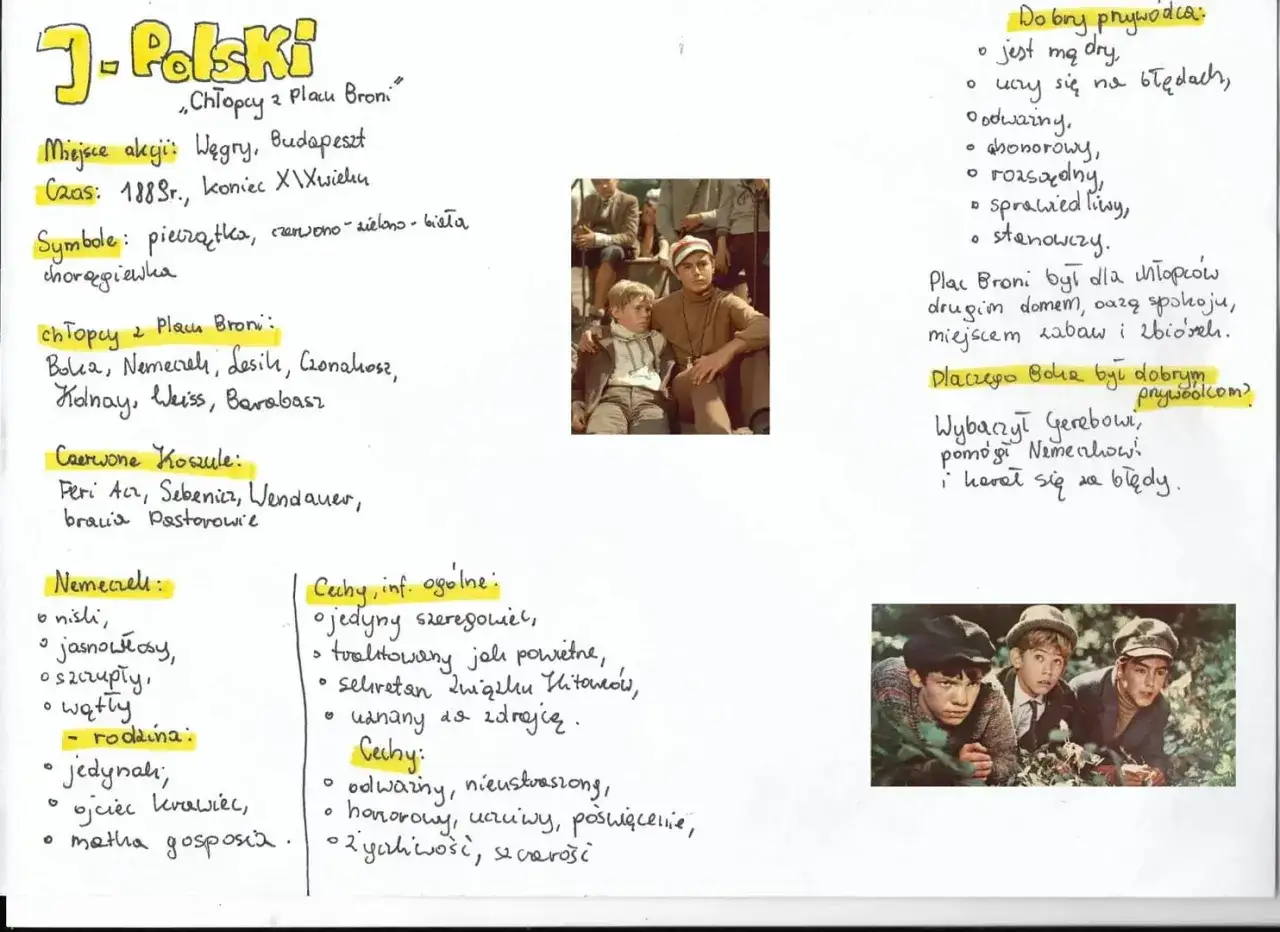 J-Polski
„Chłopcy z Placu Broni”
Miejsce akcji: Węgry, Budapeszt
Czas: 1889r., koniec XIXwieku
Symbole: pieczątka, czerwono-zielono-biała
chorągiewka
chłopcy z Placu Broni:
Boka, Nemeczek, Lesik, Czonakosz,
Kolnay, Weiss, Barabasz
Czerwone Koszule:
Feri Acz, Sebenicz, Wendauer,
bracia Pastorowie
Nemeczek:
niski,
jasnowłosy,
szczupły,
wątły
- rodzina:
jedynak,
ojciec krawiec,
matka gosposia.
Cechy, inf. ogólne:
jedyny szeregowiec,
traktowany jak powietrze,
sekretarz Związku Kitowców,
uznany za zdrajcę.
Cechy:
odważny, nieustraszony,
honorowy, uczciwy, poświęcenie,
życzliwość, szczerość
Dobry przywódca:
jest mądry,
uczy się na błędach,
odważny,
honorowy,
rozsądny,
sprawiedliwy,
stanowczy.
Plac Broni był dla chłopców
drugim domem, oazą spokoju,
miejscem zabaw i zbiórek.
Dlaczego Boka był dobrym
przywódcom?
Wybaczył Gerebowi,
pomógł Nemeczkowi
i karał się za błędy.